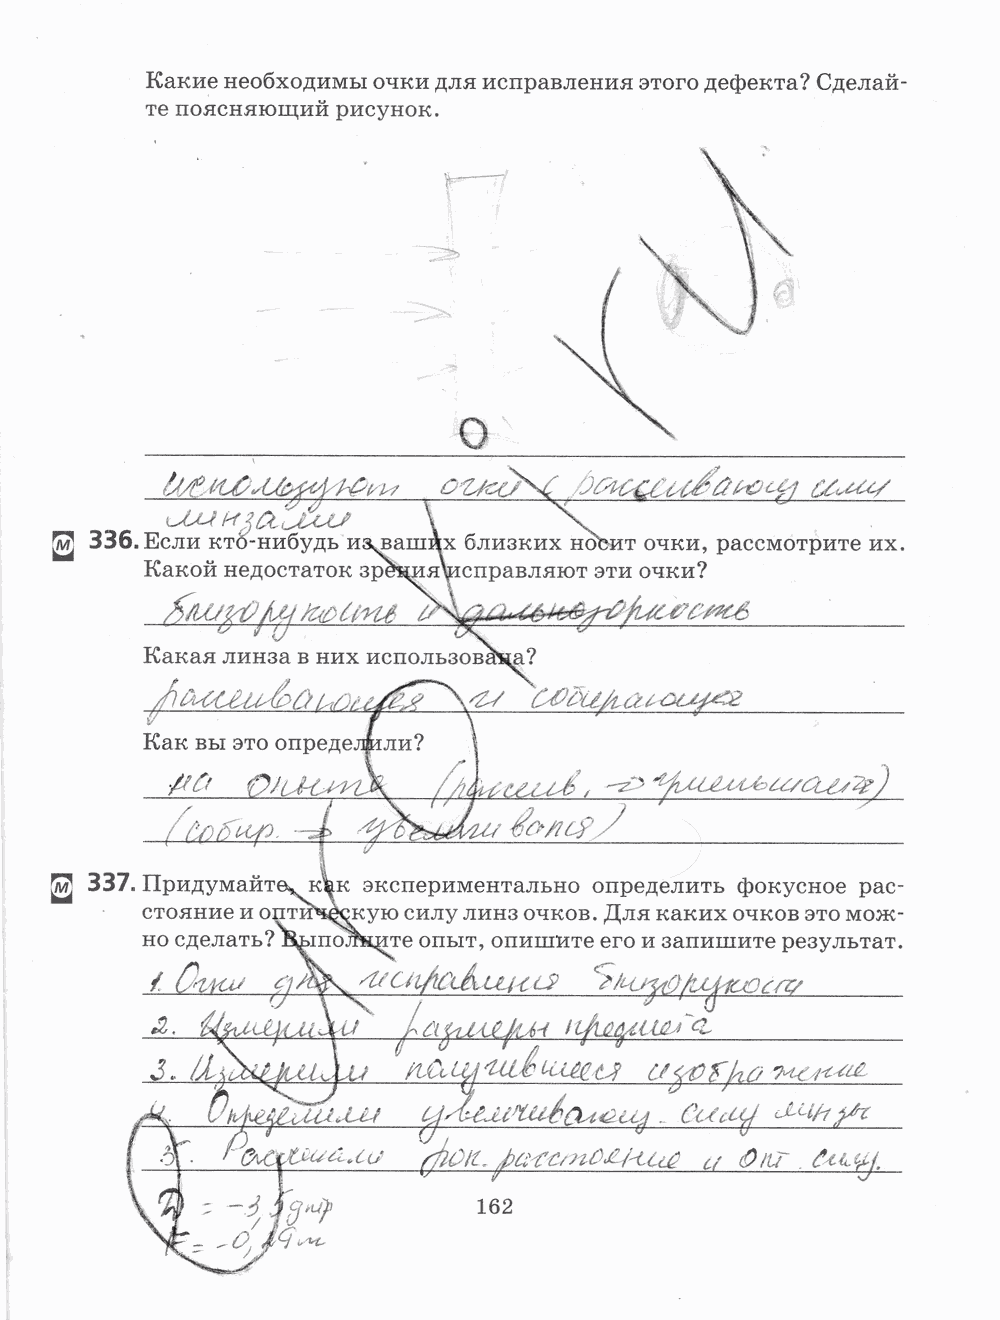 Какие необходимы очки для исправления этого дефекта? Сделай-
те поясняющий рисунок.
используют очки с рассеивающими
линзами
М 336. Если кто-нибудь из ваших близких носит очки, рассмотрите их.
Какой недостаток зрения исправляют эти очки?
близорукость и дальнозоркость
Какая линза в них использована?
рассеивающая и собирающая
Как вы это определили?
на опыте (рассеив. → уменьшаета)
(собир. → увеличивался)
М 337. Придумайте, как экспериментально определить фокусное рас-
стояние и оптическую силу линз очков. Для каких очков это мож-
но сделать? Выполните опыт, опишите его и запишите результат.
1. Очки для исправления близорукости
2. Измерили размеры предмета
3. Измерили получившееся изображение
4. Определили увеличивающ. силу линзы
5. Рассчитали фок. расстояние и опт. силу.
D = -3,5 дптр
F = -0,29 м
162